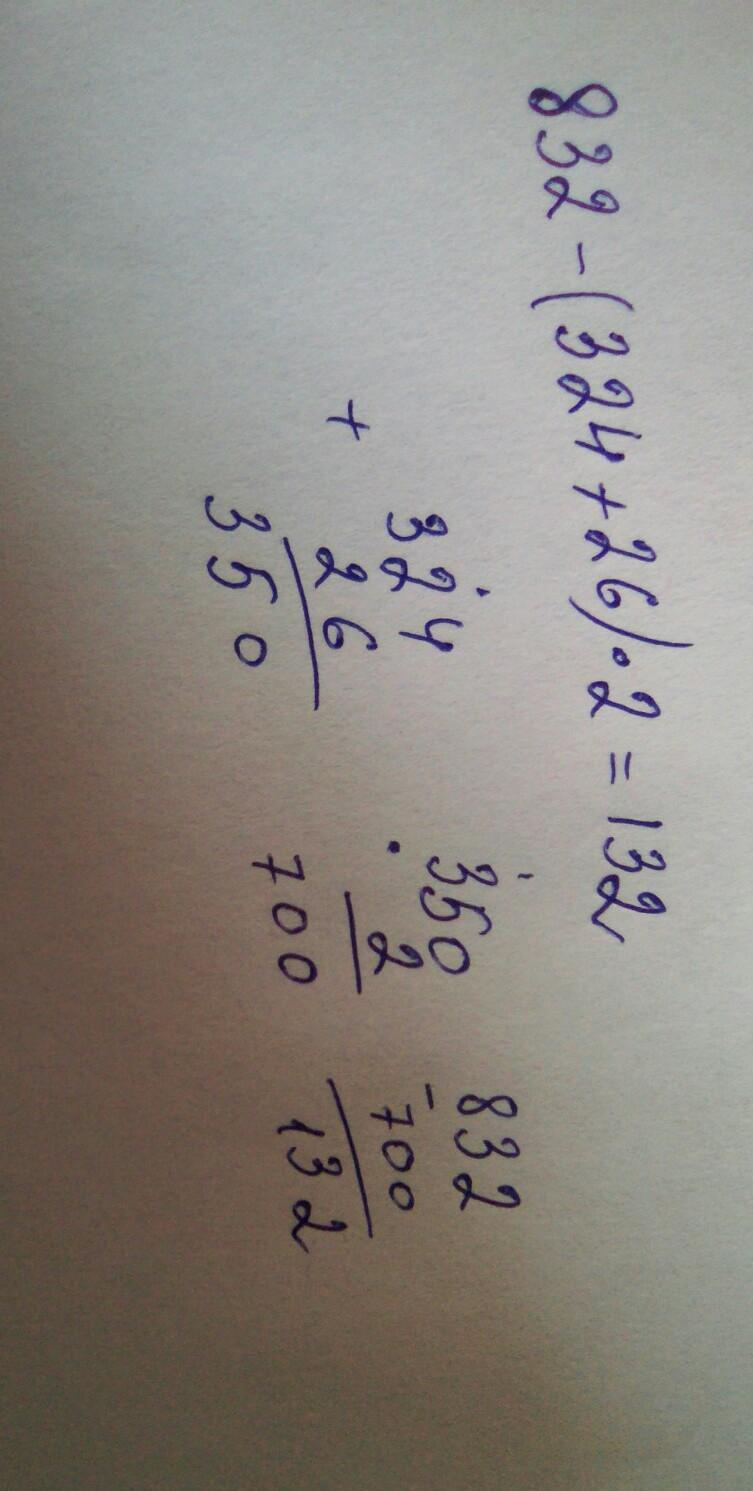 832 - (324 + 26) · 2 = 132
324
+ 26
350
350
· 2
700
832
- 700
132